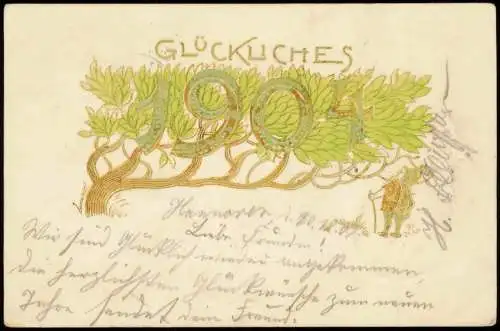 GLÜCKLICHES
1904
Hannover, d. 30.12.03.
Liebe Freundin!
Wir sind Glücklich wieder angekommen,
Die herzlichsten Glückwünsche zum neuen
Jahre sendet dein Freund.
H.